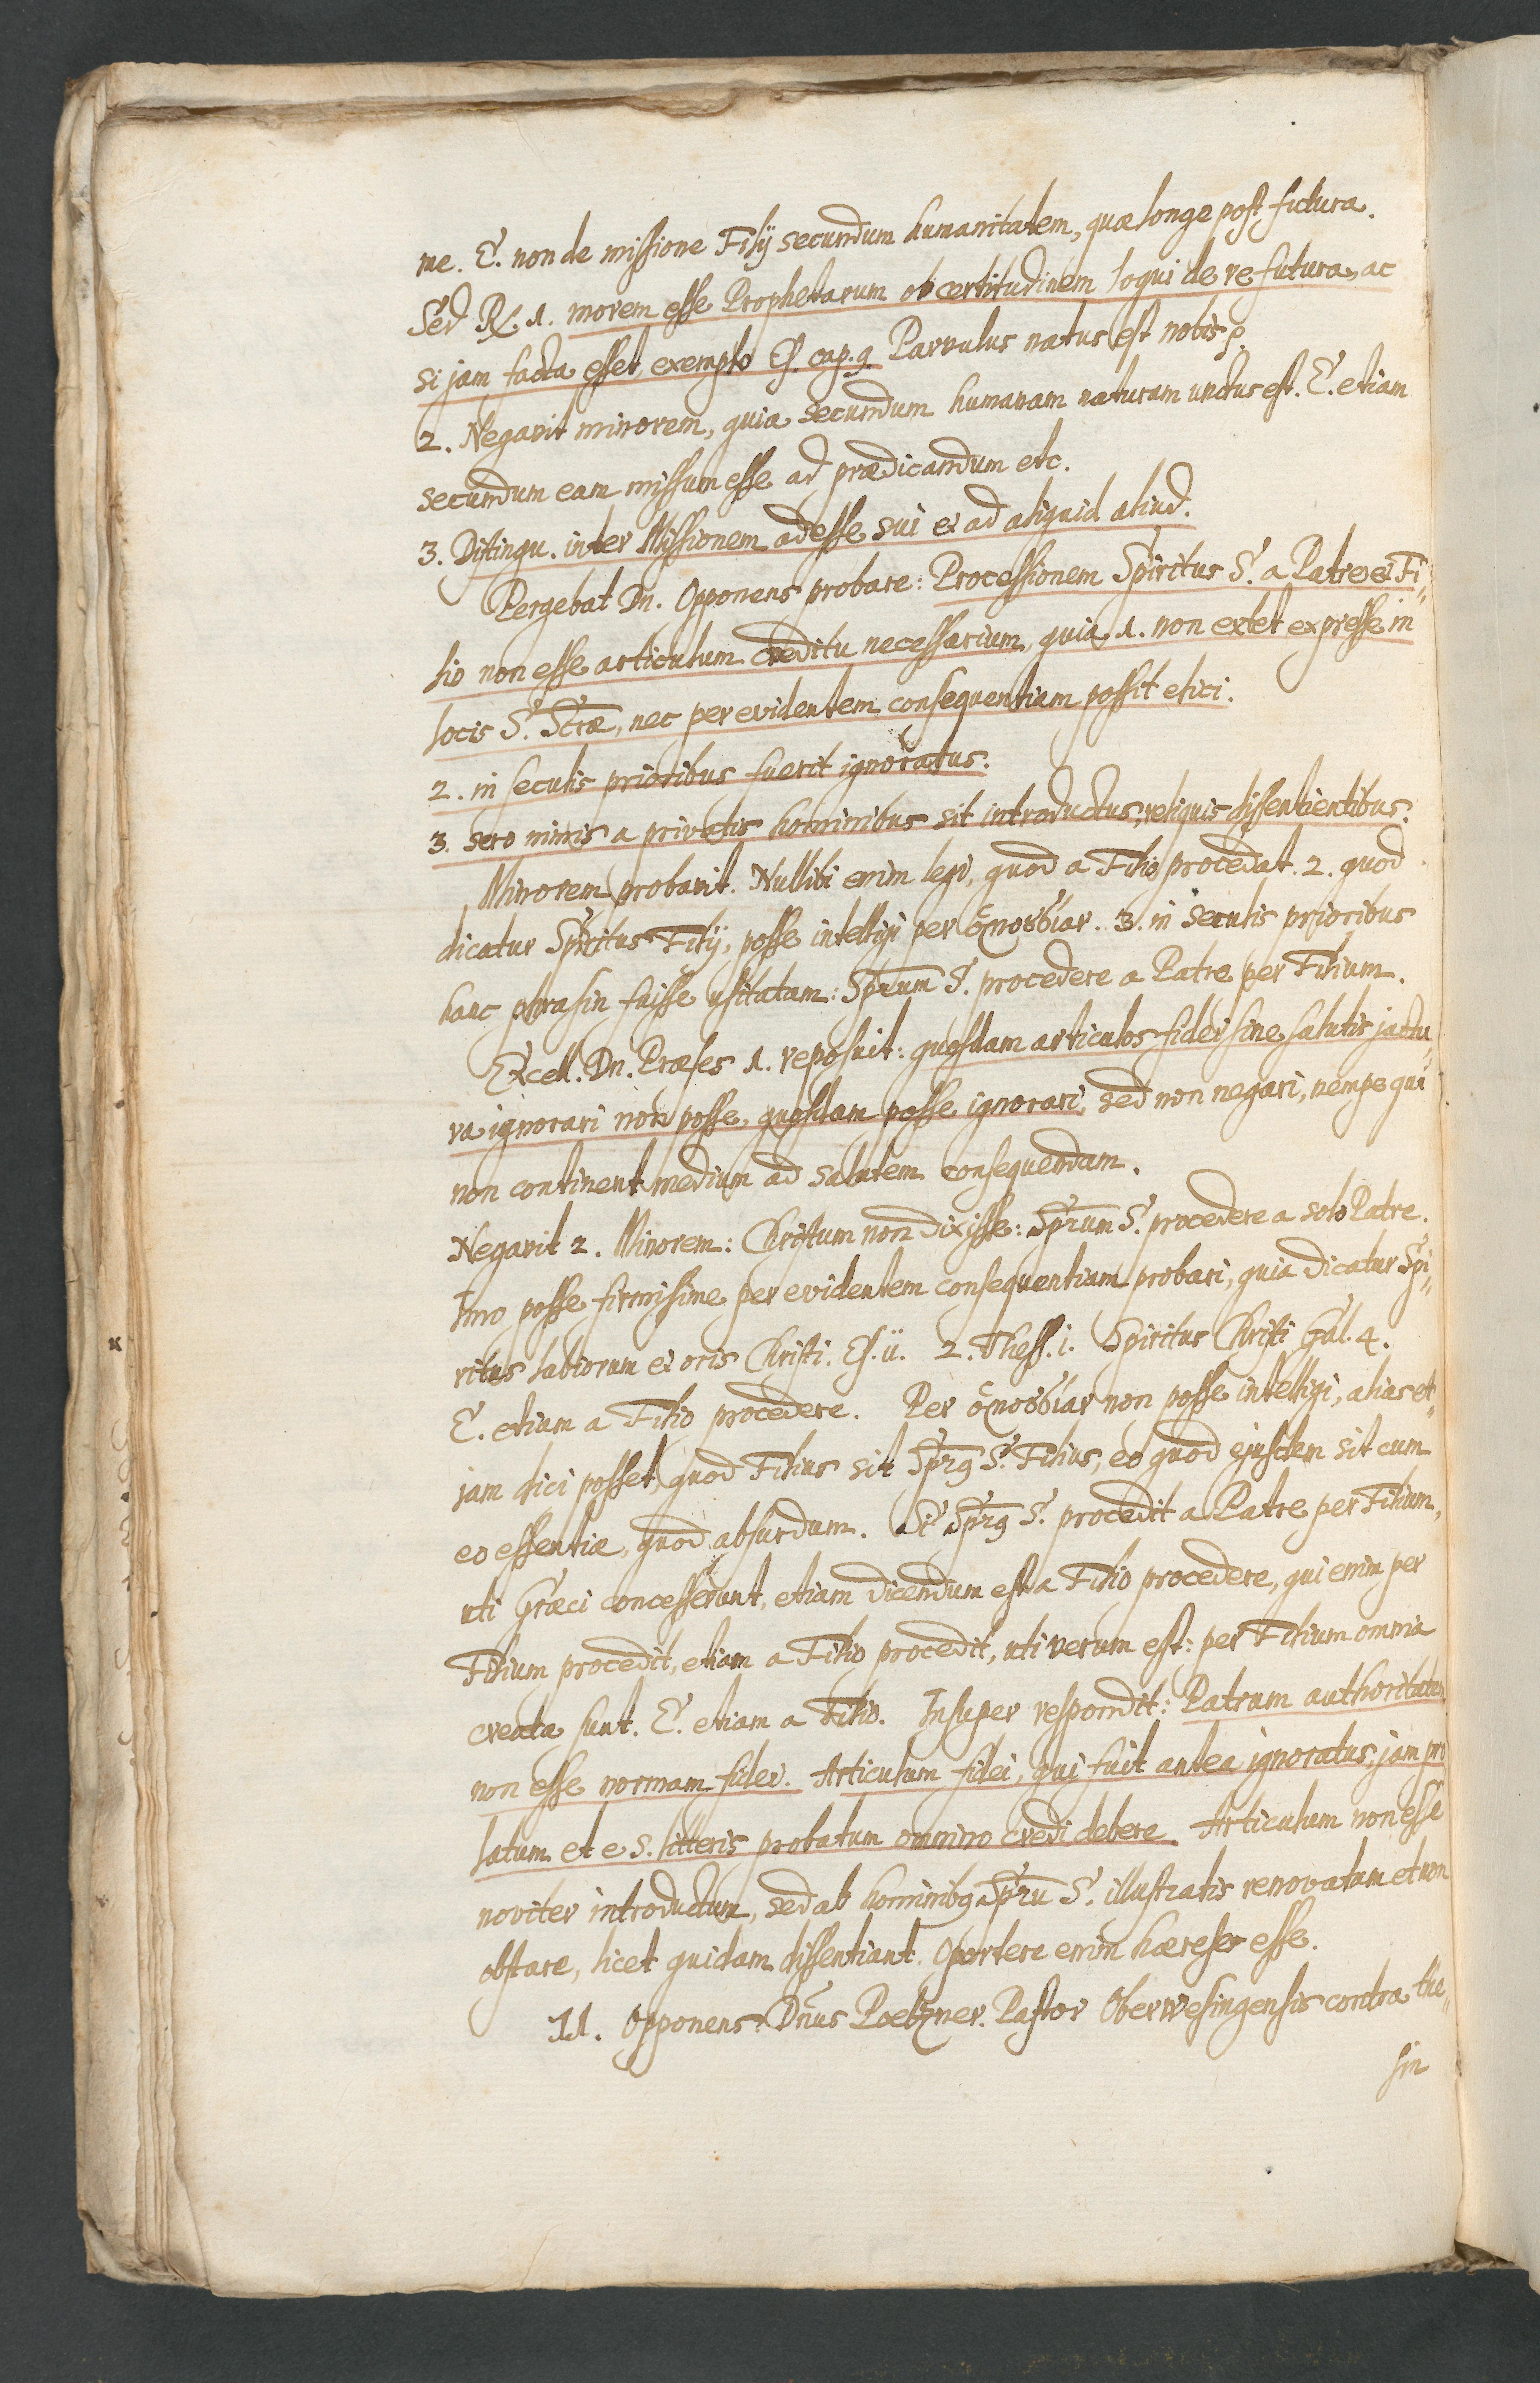 me. E. non de missione Filij secundum humanitatem, quæ longe post futura.
Sed R. 1. morem esse Prophetarum ob certitudinem loqui de re futura, ac
si jam facta esset, exemplo Es. cap. 9. Parvulus natus est nobis p.
2. Negavit minorem, quia secundum humanam naturam unctus est. E. etiam
secundum eam missum esse ad prædicandum etc.
3. Distingu. inter Missionem ad esse sui et ad aliquid aliud.
Pergebat Dn. Opponens probare: Processionem Spiritus S. a Patre et Fi„
lio non esse articulum creditu necessarium, quia 1. non extet expresse in
locis S. Scræ, nec per evidentem consequentiam possit elici.
2. in seculis prioribus fuerit ignoratus.
3. sero nimis a privatis hominibus sit introductus, reliquis dissentientibus.
Minorem probavit. Nullibi enim legi, quod a Filio procedat. 2. quod
dicatur Spiritus Filij, posse intelligi per ὁμοȣσίαν. 3. in seculis prioribus
hanc phrasin fuisse usitatam: Sprum S. procedere a Patre per Filium.
Excell. Dn. Præses 1. reposuit: quosdam articulos fidei sine salutis jactu„
ra ignorari non posse, quosdam posse ignorari, sed non negari, nempe qui
non continent medium ad salutem consequendam.
Negavit 2. Minorem: Christum non dixisse: Sprum S. procedere a solo Patre.
Imo posse firmissime per evidentem consequentiam probari, quia dicatur Spi„
ritus labiorum et oris Christi. Es. ii. 2. Thess. i. Spiritus Christi Gal. 4.
E. etiam a Filio procedere. Per ὁμοȣσίαν non posse intelligi, alias et„
jam dici posset, quod Filius sit Sprꝰ S. Filius, eo quod ejusdem sit cum
eo essentiæ, quod absurdum. Si Sprꝰ S. procedit a Patre per Filium,
uti Græci concesserunt, etiam dicendum est a Filio procedere, qui enim per
Filium procedit, etiam a Filio procedit, uti verum est: per Filium omnia
creata sunt. E. etiam a Filio. Insuper respondit: Patrum authoritatem
non esse normam fidei. Articulum fidei, qui fuit antea ignoratus, jam pro
latum et e S. litteris probatum omnino credi debere. Articulum non esse
noviter introductum, sed ab hominibꝰ Spru S. illustratis renovatum et non
obstare, licet quidam dissentiant. Oportere enim hæreses esse.
11. Opponens Dnus Poelzner. Pastor Oberwesingensis contra the„
sin